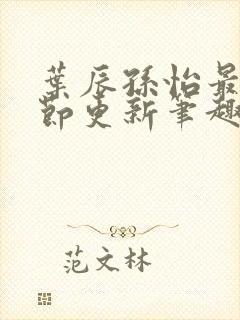 葉辰孫怡最
節更新筆趣
范文林